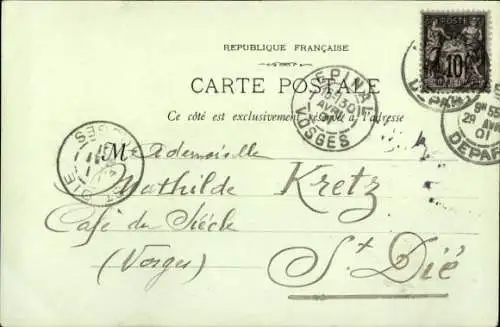 REPUBLIQUE FRANÇAISE
CARTE POSTALE
Ce côté est exclusivement réservé à l'adresse
POSTE
10
EPINAL
VOSGES
DEPART
DEPART
01
DIE
Mademoiselle
Mathilde Kretz
Café du Siécle
(Vosges) St Dié